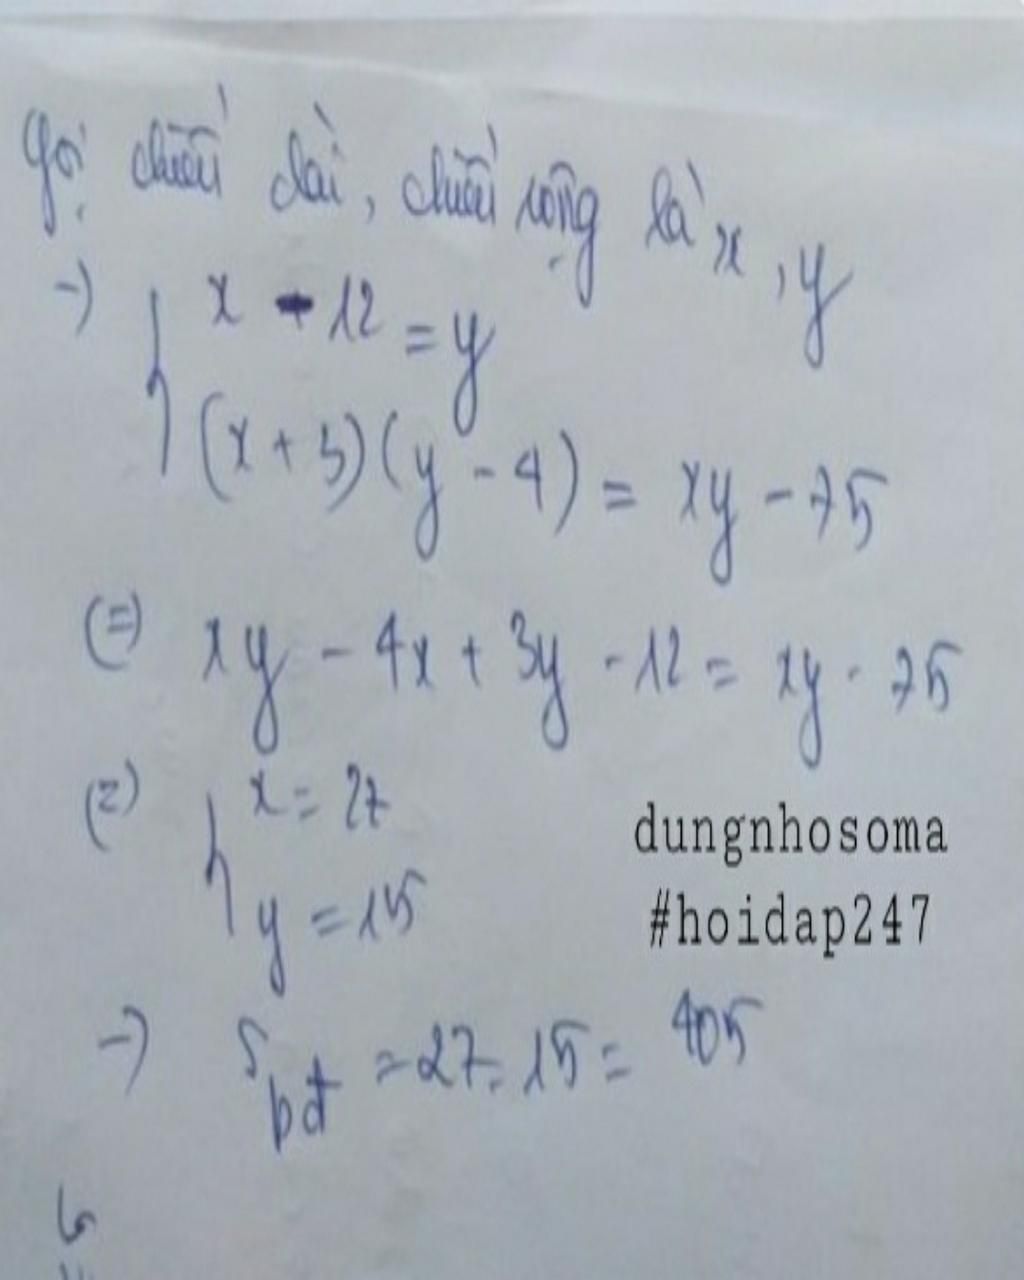 Gọi chiều dài, chiều rộng là x, y
→ { x - 12 = y
(x + 3)(y - 4) = xy - 75
(=) xy - 4x + 3y - 12 = xy - 75
(=) { x = 27
y = 15
dungnhosoma
#hoidap247
→ S bđ = 27. 15 = 405